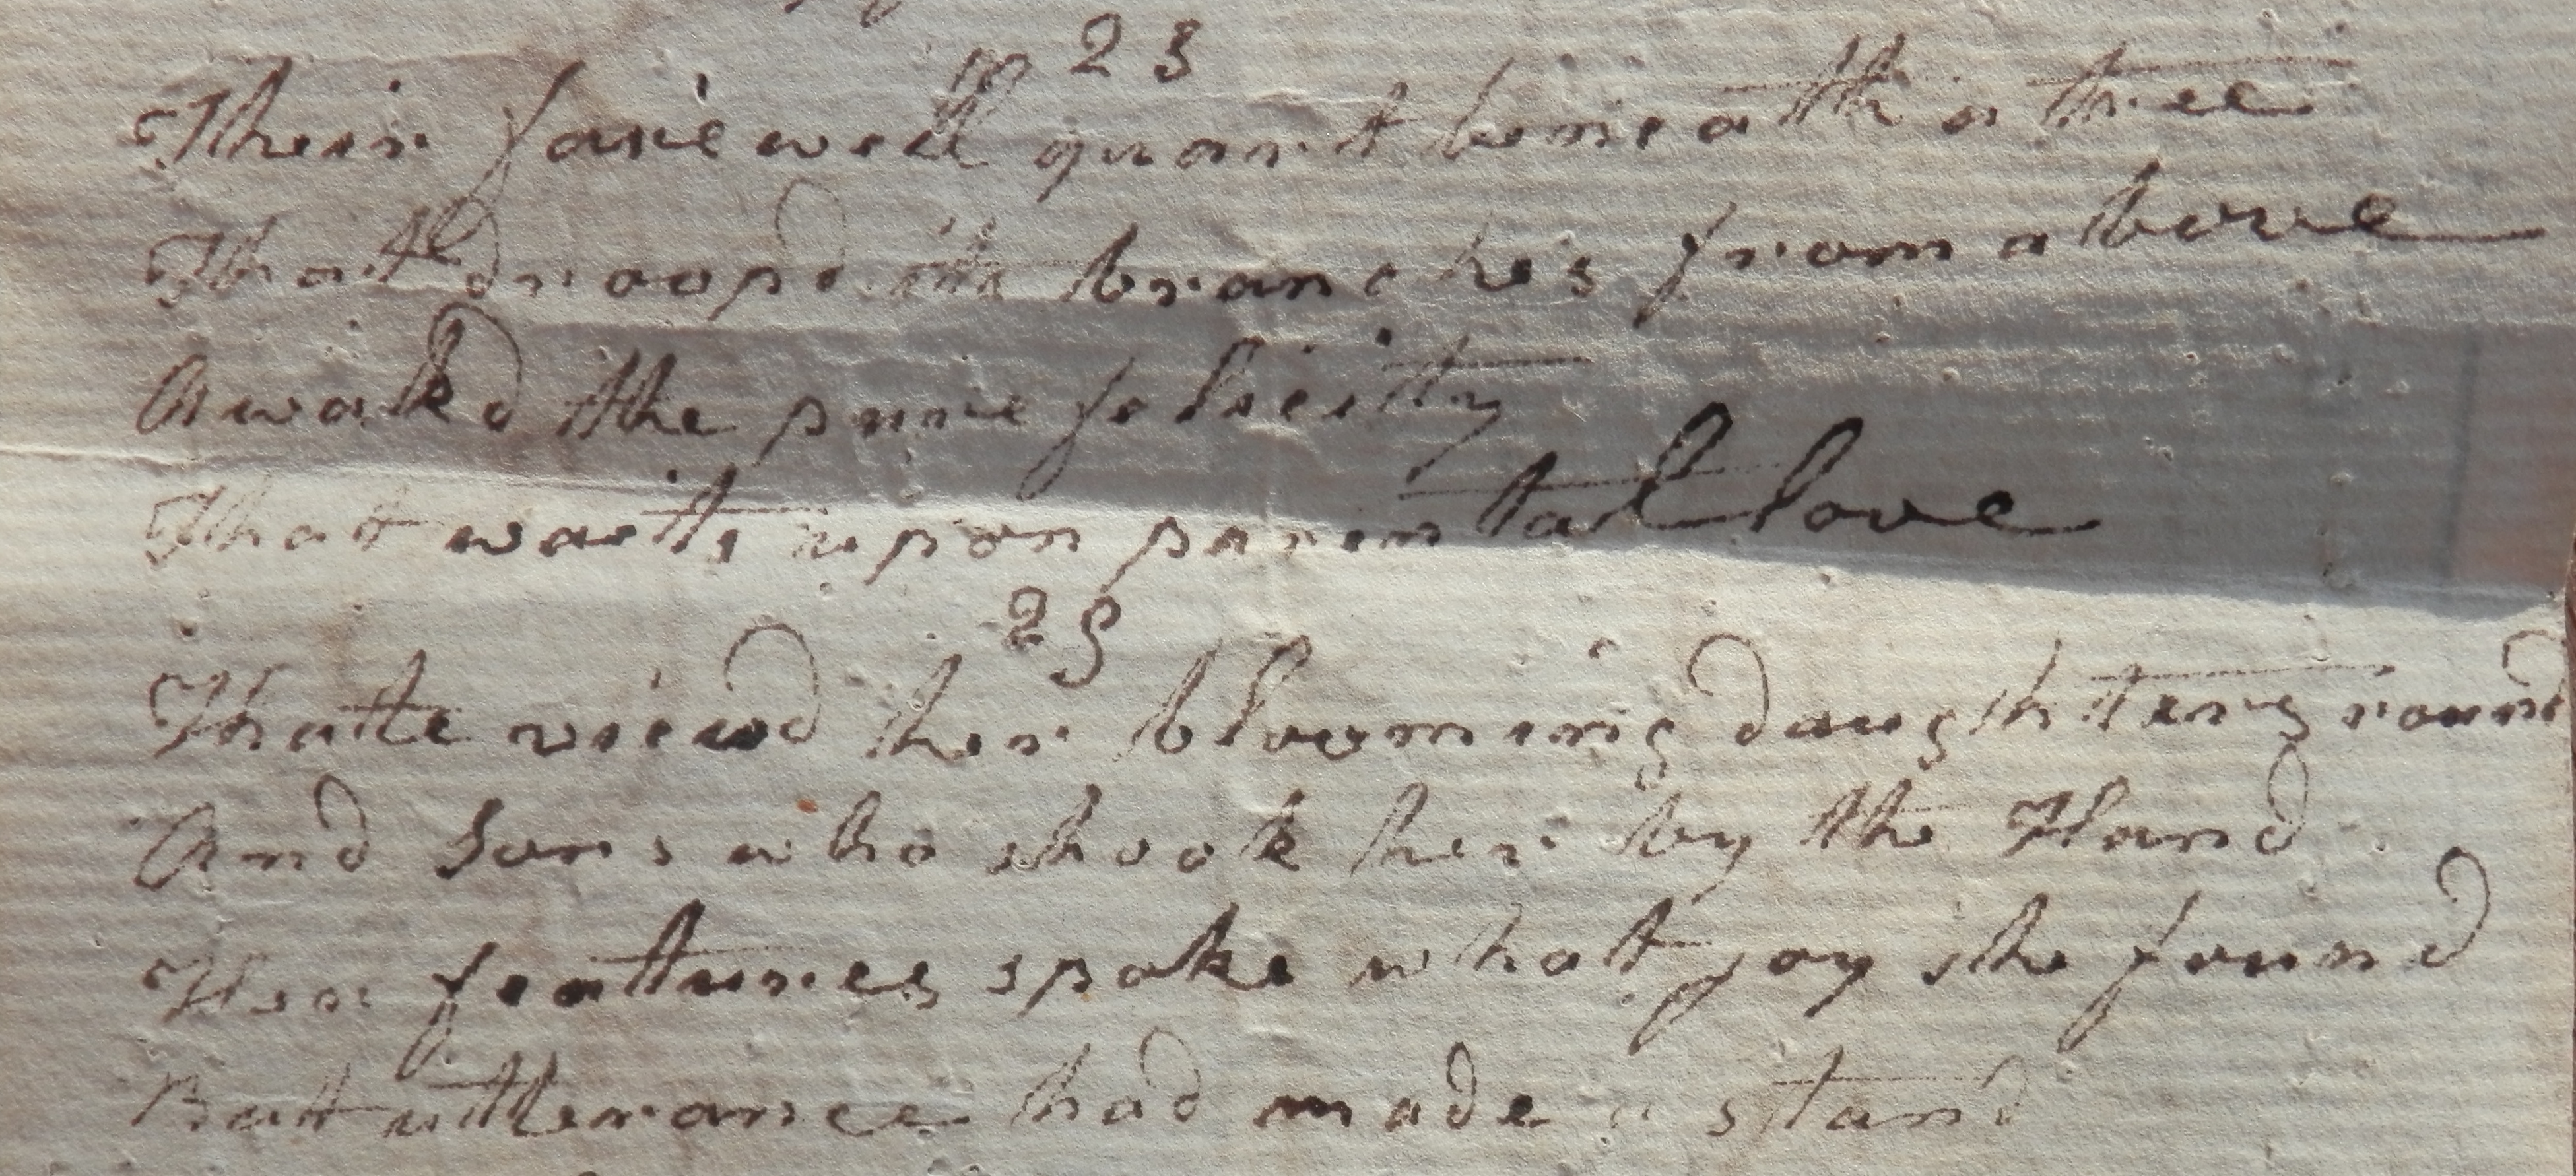 23
Their farewell quart beneath a tree
That droopd its branches from above
Awakd the pure felicity
That waits upon parental love
25
Kate viewd her blooming daughters round
And Sons who shook her by the Hand
Her features spoke what joy she found
But utterance had made a stand